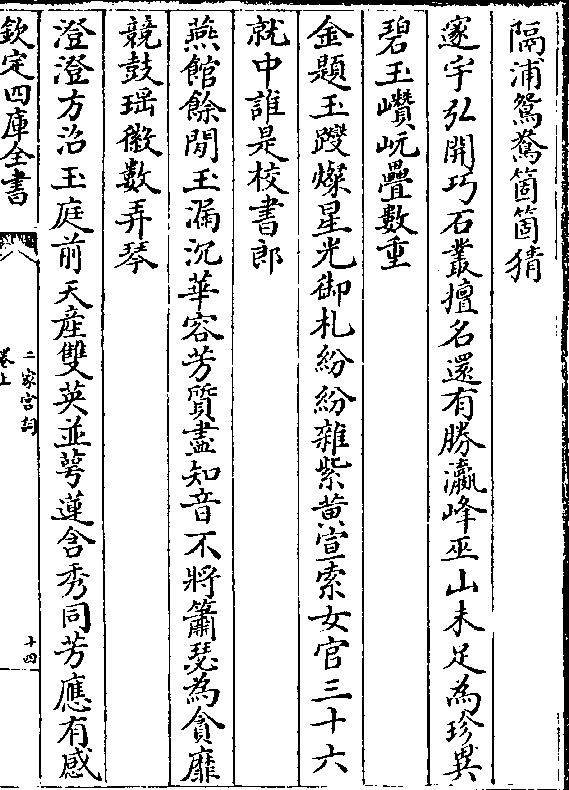 隔浦鴛鴦箇箇猜
邃宇弘開巧石叢擅名還有勝瀛峰巫山未足為珍異
碧玉巑岏疊數重
金題玉躞燦星光御札紛紛雜紫黄宣索女官三十六
就中誰是校書郎
燕館餘閒玉漏沉華容芳質盡知音不將簫瑟為貪靡
競鼓瑶徽數弄琴
澄澄方沼玉庭前天産雙英並萼蓮含秀同芳應有感
欽定四庫全書
二家宫詞
卷上
十四